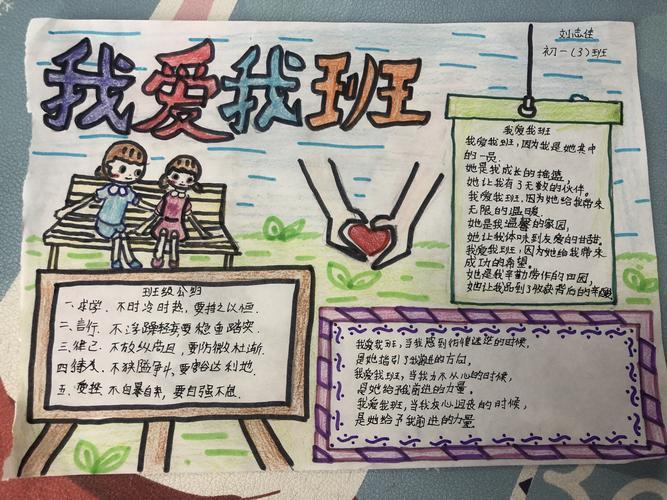 我爱我班
刘志佳
初一(3)班
我爱我班
我爱我班,因为我是她其中
的一员.
她是我成长的摇篮,
她让我有了无数的伙伴。
我爱我班.因为她给我带来
无限的温暖.
她是我温馨的家园,
她让我体味到友爱的甘甜.
我爱我班:因为她给我带来
成功的希望.
她是我辛勤劳作的田园,
她让我品到了收获背后的辛酸
班级公约
一、求学.不时冷时热,要持之以恒.
二、言行.不浮躁轻率要稳重踏实.
三、律己.不放纵苟且,要防微杜渐.
四、待友.不狭隘争斗,要豁达利他.
五、 不自暴自弃,要自强不息.
我爱我班,当我感到彷徨迷茫的时候,
是她指引了我前进的方向.
我爱我班,当我力不从心的时候,
是她给予我前进的力量.
我爱我班,当我灰心沮丧的时候,
是她给予我前进的力量